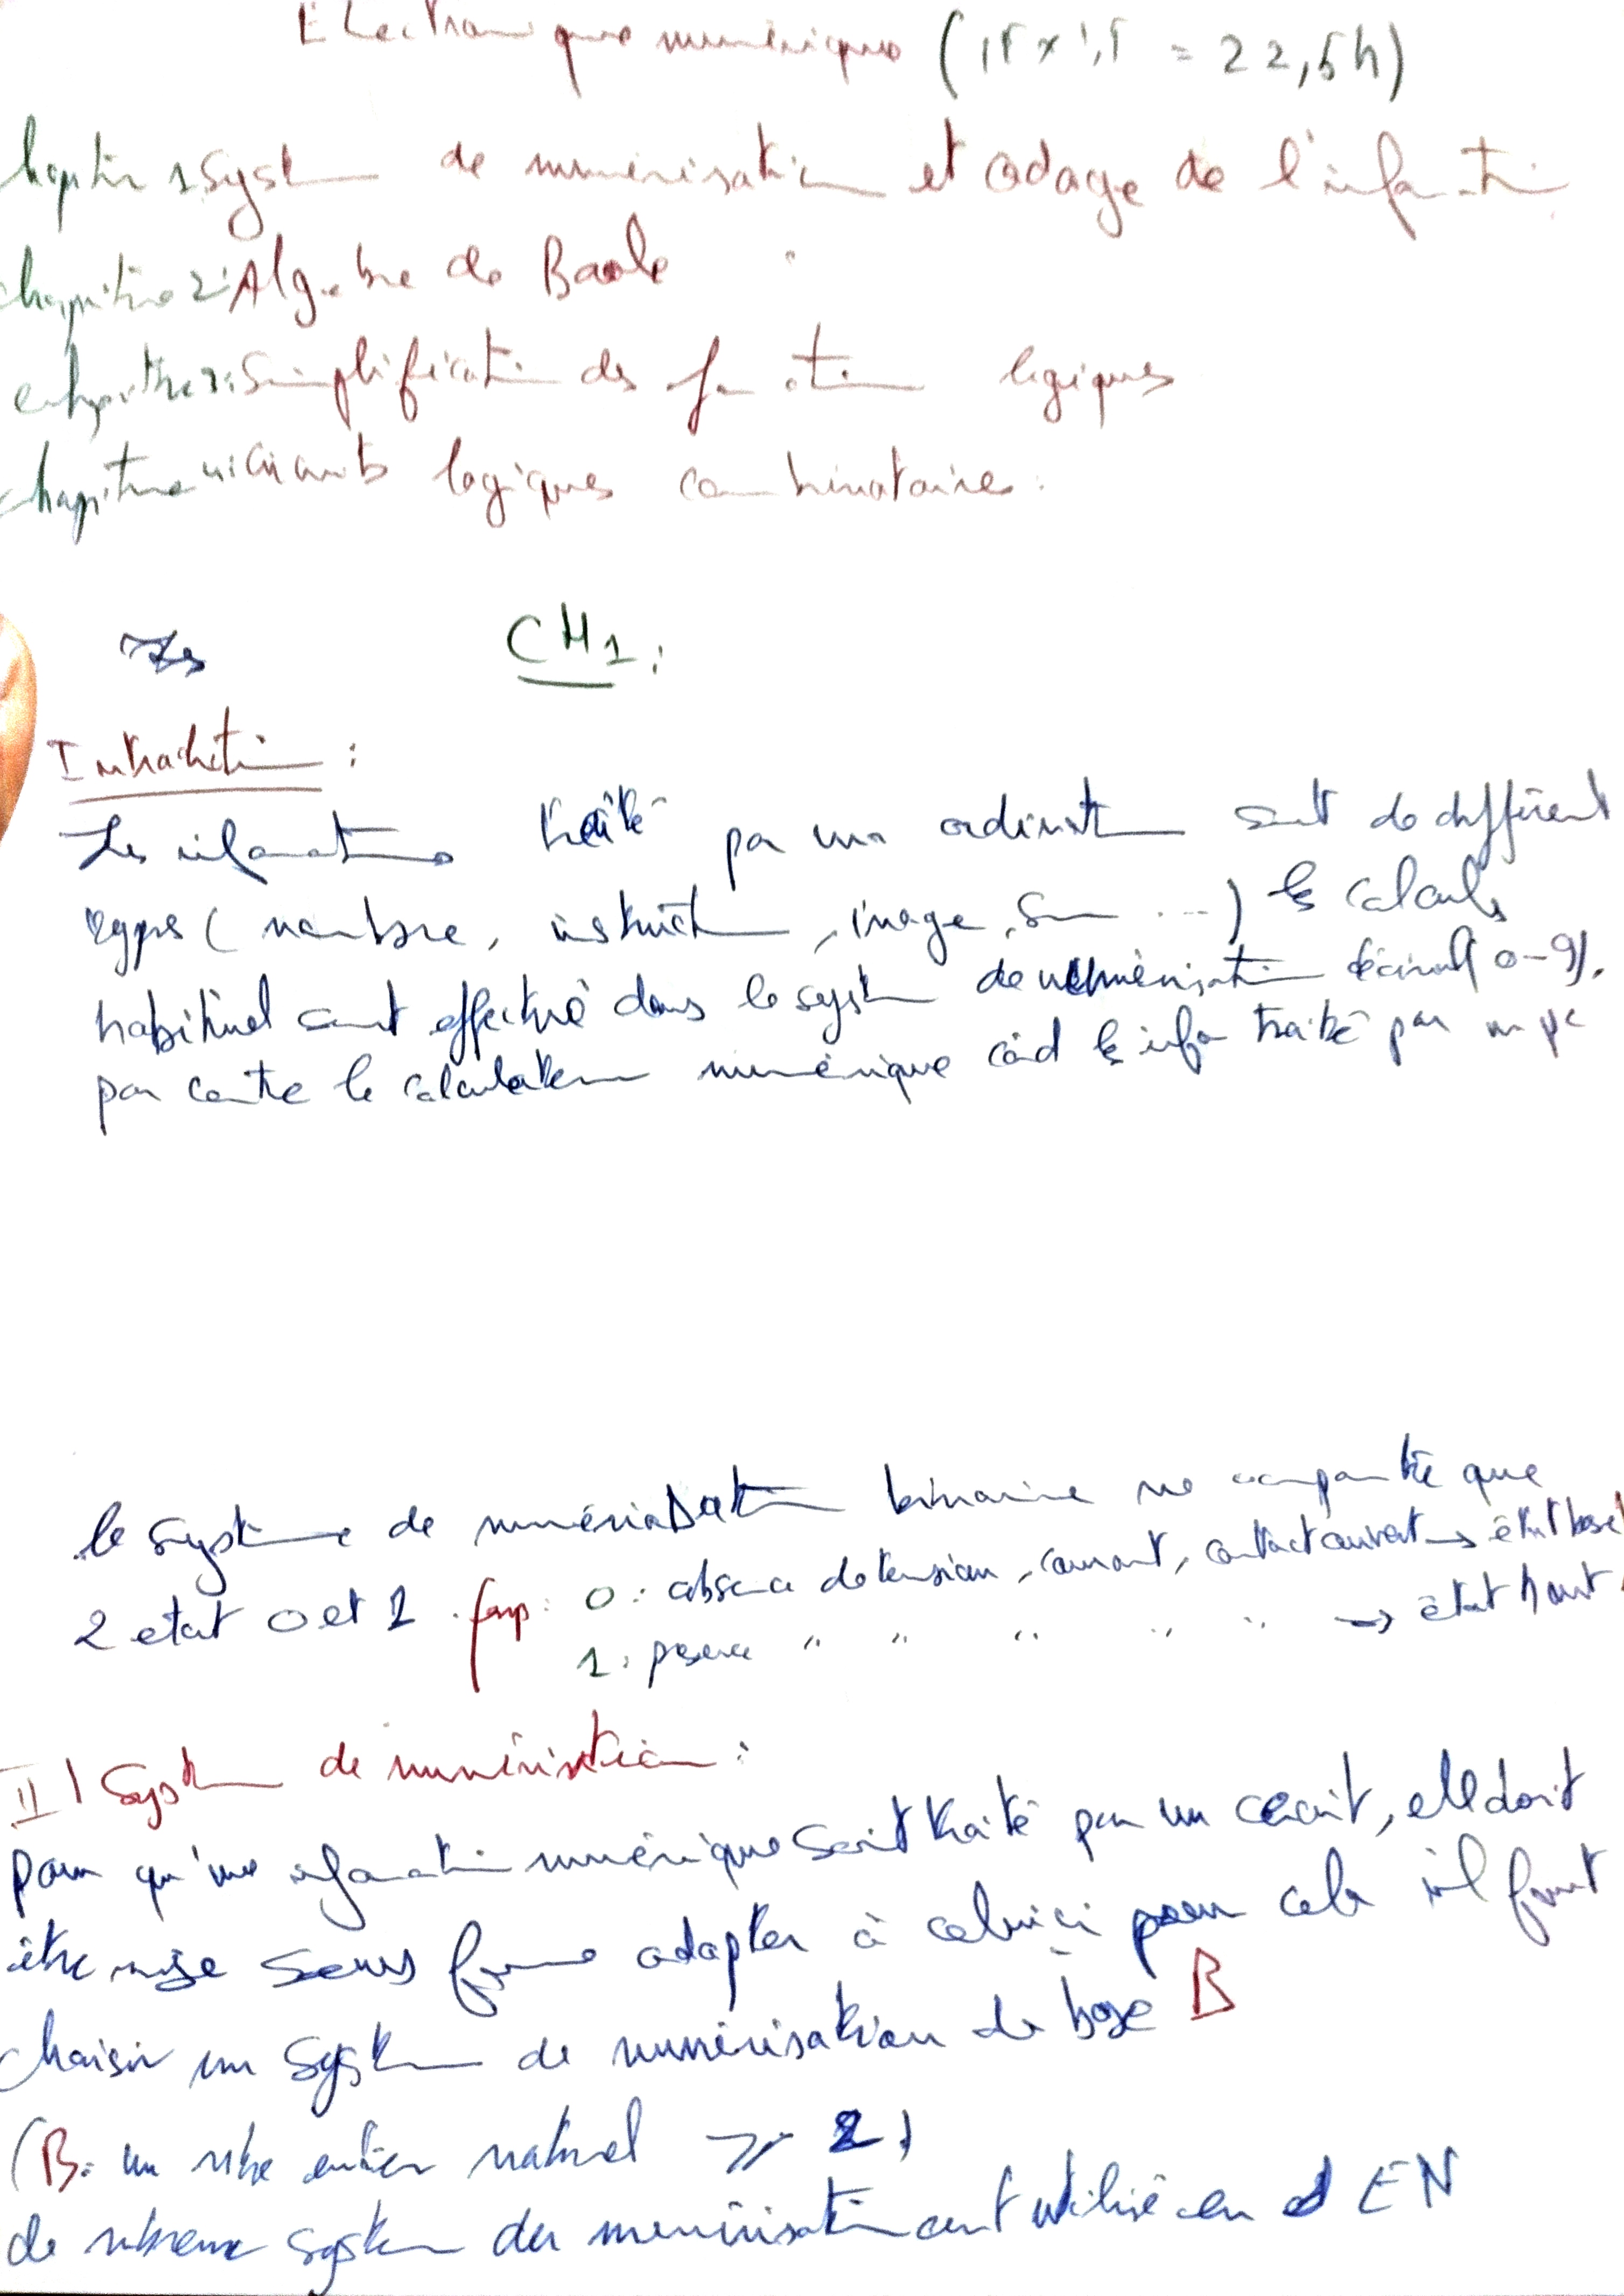 Electronique numérique (15 x 1,5 = 22,5h)
hapitre 1 System de numérisation et codage de l'infation
chapitre 2: Algebre de Boole
chapitre 3: Simplification des fonction logiques
chapitre 4: Circuits logiques combinatoires.
CH1:
Introduction :
Les informations traité par un ordinat sont de different
types ( nombre, instruct, image, Son ...) les calculs
habituel sont effectué dans le syst de numérisation décimal (0-9).
par contre le calculateur numérique càd les info traité par un pc
le systeme de numérisation binaire ne comporte que
2 etat 0 et 1 . 0 : absence de tension, courant, contact ouvert → état bas
1 : presence " " " " " → état haut
II ) System de numérisation :
pour qu'une information numérique soit traité par un circuit, elle doit
être mise sous forme adapter à celui ci pour cela il faut
choisir un System de numérisation de base B
(B: un nbre entier naturel ≥ 2)
de nbreux system de numérisation sont utilisé en EN